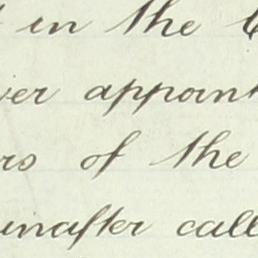 in the
ver appoint
rs of the
unafter call